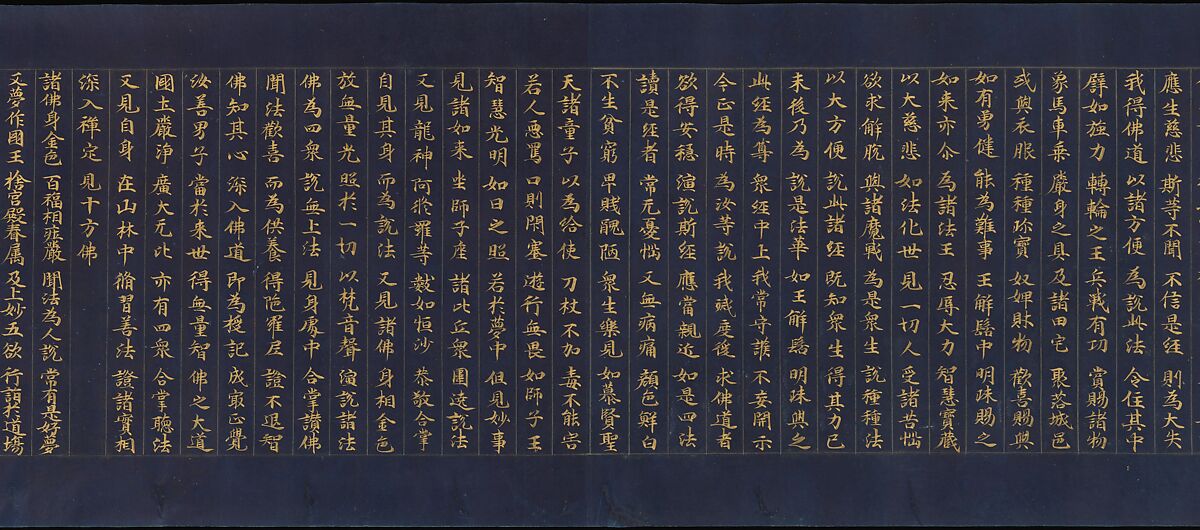 應生慈悲 斯等不聞 不信是經 則為大失
我得佛道 以諸方便 為說此法 令住其中
譬如強力 轉輪之王 兵戰有功 賞賜諸物
象馬車乘 嚴身之具 及諸田宅 聚落城邑
或與衣服 種種珎寶 奴婢財物 歡喜賜與
如有勇健 能為難事 王解髻中 明珠賜之
如来亦尒 為諸法王 忍辱大力 智慧寶藏
以大慈悲 如法化世 見一切人 受諸苦惱
欲求解脫 與諸魔戰 為是眾生 說種種法
以大方便 說此諸經 既知眾生 得其力已
末後乃為 說是法華 如王解髻 明珠與之
此經為尊 眾經中上 我常守護 不妄開示
今正是時 為汝等說 我滅度後 求佛道者
欲得安穩 演說斯經 應當親近 如是四法
讀是經者 常无憂惱 又無病痛 顏色鮮白
不生貧窮 卑賤醜陋 眾生樂見 如慕賢聖
天諸童子 以為給使 刀杖不加 毒不能害
若人惡罵 口則閉塞 遊行無畏 如師子王
智慧光明 如日之照 若於夢中 但見妙事
見諸如来 坐師子座 諸比丘眾 圍遶說法
又見龍神 阿脩羅等 數如恒沙 恭敬合掌
自見其身 而為說法 又見諸佛 身相金色
放無量光 照於一切 以梵音聲 演說諸法
佛為四眾 說無上法 見身處中 合掌讚佛
聞法歡喜 而為供養 得陁羅尼 證不退智
佛知其心 深入佛道 即為授記 成最正覺
汝善男子 當於来世 得無量智 佛之大道
國土嚴淨 廣大无比 亦有四眾 合掌聽法
又見自身 在山林中 脩習善法 證諸實相
深入禪定 見十方佛
諸佛身金色 百福相莊嚴 聞法為人說 常有是好夢
又夢作國王 捨宮殿眷属 及上妙五欲 行詣於道場